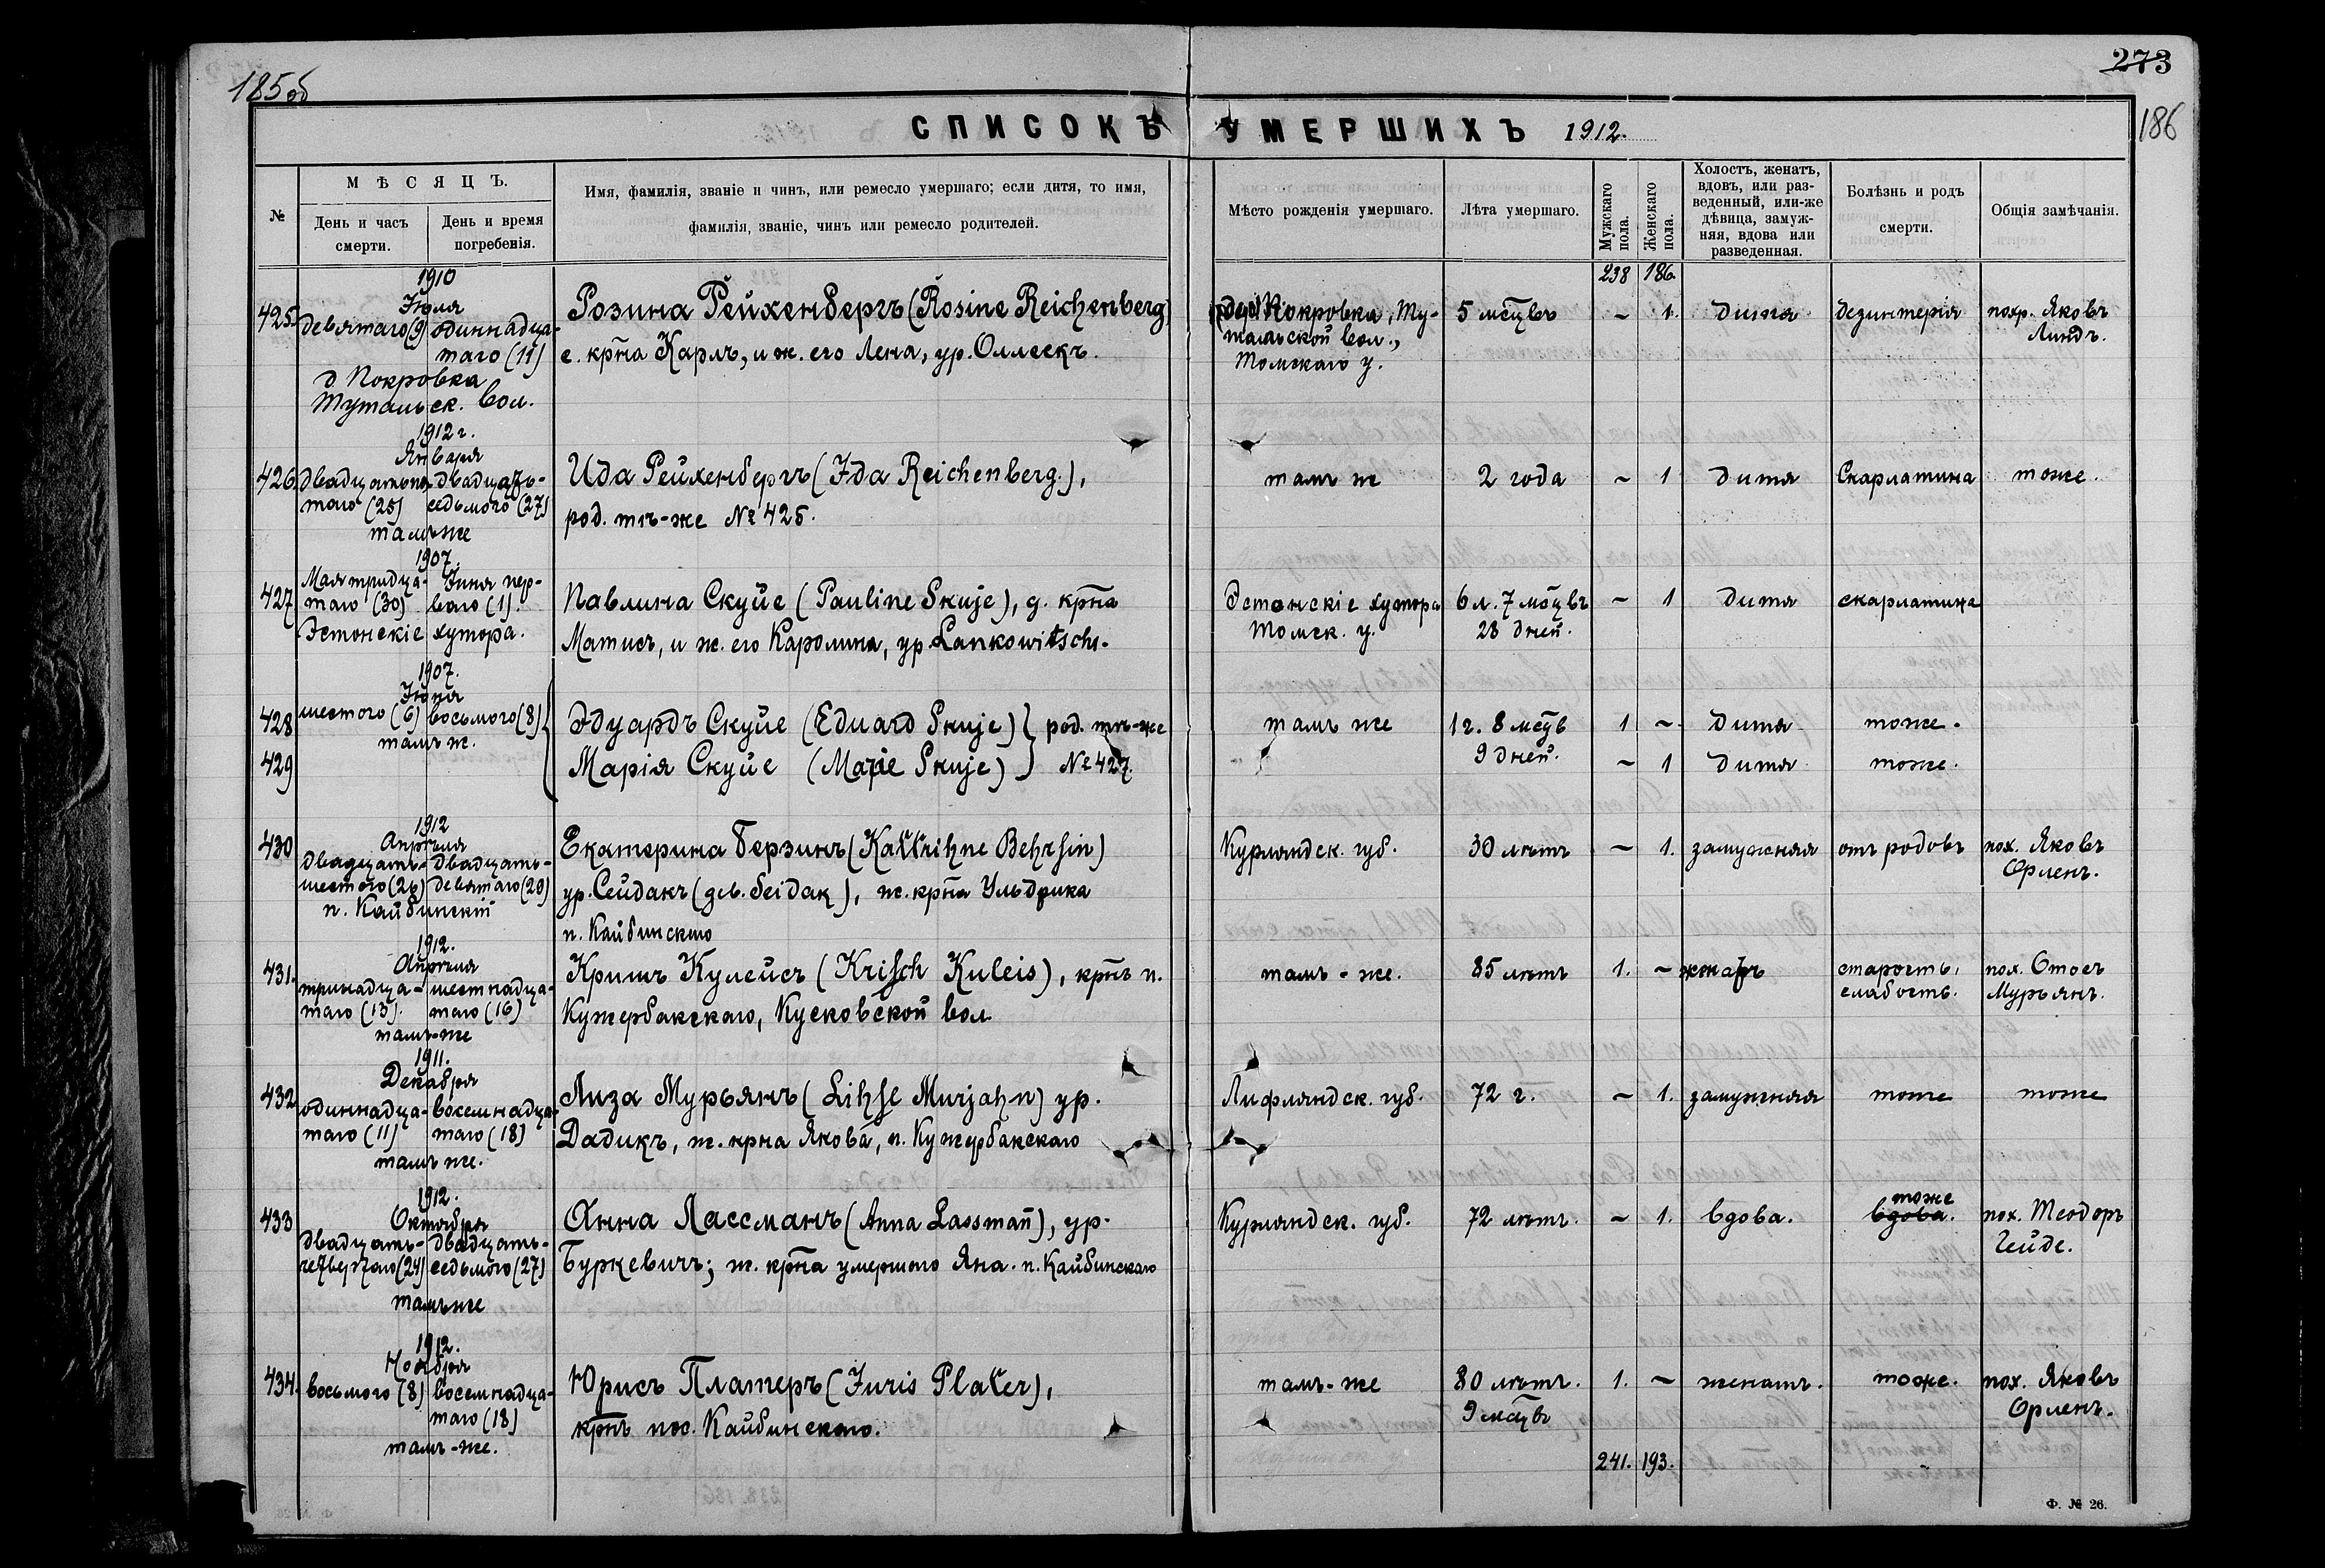 185об
273
186
СПИСОКЪ УМЕРШИХЪ 1912.
№
МѢСЯЦЪ.
День и часъ смерти.
День и время погребенія.
Имя, фамилія, званіе и чинъ, или ремесло умершаго; если дитя, то имя,
фамилія, званіе, чинъ или ремесло родителей.
Мѣсто рожденія умершаго.
Лѣта умершаго.
Мужскаго пола.
Женскаго пола.
Холостъ, женатъ,
вдовъ, или раз-
веденный, или-же
дѣвица, замуж-
няя, вдова или
разведенная.
Болѣзнь и родъ
смерти.
Общія замѣчанія.
238 186.
1910
Іюля
425. девятаго (9) одиннадца-
таго (11)
д. Покровка
Тутальск. вол.
Розина Рейхенбергъ (Rosine Reichenberg)
с. крн̃а Карлъ, и ж. его Лена, ур. Оллескъ.
дер. Покровка, Ту-
тальской вол.,
Томскаго у.
5 мсцвъ
~ 1.
дитя
дезинтерія
похр. Яковъ
Линдъ.
1912 г.
Января
426. двадцатьпя- двадцать-
таго (25) седьмого (27)
тамъже
Ида Рейхенбергъ (Ida Reichenberg.),
род. тѣ-же № 425.
тамъ ж
2 года
~ 1
дитя
Скарлатина
тоже.
1907.
Мая тридца- Іюня пер-
427 таго (30) ваго (1).
Эстонскіе хутора.
Павлина Скуйе (Pauline Skuje), д. крн̃а
Матисъ, и ж. его Каролина, ур. Lankowitsch.
Эстонскіе хутора
Томск. у.
6 л. 7 мсцвъ
28 дней.
~ 1
дитя
скарлатина
1907.
Іюня
428 шестого (6) восьмого (8)
тамъ ж.
Эдуардъ Скуйе (Eduard Skuje) род. тѣ-же
тамъ же
1 г. 8 мсцв
9 дней.
1 ~
дитя
тоже.
429
Марія Скуйе (Marie Skuje) № 427.
~ 1
дитя
тоже.
1912
430 Апрѣля
двадцать- двадцать-
шестого (26) девятаго (29)
п. Кайбинскій
Екатерина Берзинъ (Kattrihne Behrsin)
ур. Сейдакъ (geb. Seidak), ж. крн̃а Ульдрика
п. Кайбинскаго
Курляндск. губ.
30 лѣтъ
~ 1.
замужняя
отъ родовъ
пох. Яковъ
Орленъ.
1912.
Апрѣля
431. тринадца- шестнадца-
таго (13). таго (16)
тамъ-же
Кришъ Кулейсъ (Krisch Kuleis), крн̃ъ п.
Кужербакскаго, Кусковской вол.
тамъ-же.
85 лѣтъ
1. ~
старость,
слабость.
пох. Отосъ
Мурьянъ.
1911.
Декабря
432 одиннадца- восемнадца-
таго (11) таго (18)
тамъ же.
Лиза Мурьянъ (Lihse Murjahn) ур.
Дадикъ, ж. крна Якова, п. Кужербакскаго
Лифляндск. губ.
72 г.
~ 1.
замужняя
тоже
тоже
1912.
433 Октября
двадцать- двадцать-
четвертаго (24) седьмого (27)
тамъже
Анна Лассманъ (Anna Lassmañ), ур.
Буркевичъ; ж. крн̃а умершого Яна. п. Кайбинскаго
Курляндск. губ.
72 лѣтъ.
~ 1.
вдова.
тоже
вдова.
пох. Теодоръ
Гейде.
1912.
Ноября
434. восьмого (8) восемнадца-
таго (18)
тамъ-же.
Юрисъ Платеръ (Juris Plater),
крн̃ъ пос. Кайбинскаго.
тамъ-же
80 лѣтъ.
9 мсцвъ
1. ~
женатъ.
тоже.
пох. Яковъ
Орленъ.
241. 193.
Ф. № 26.